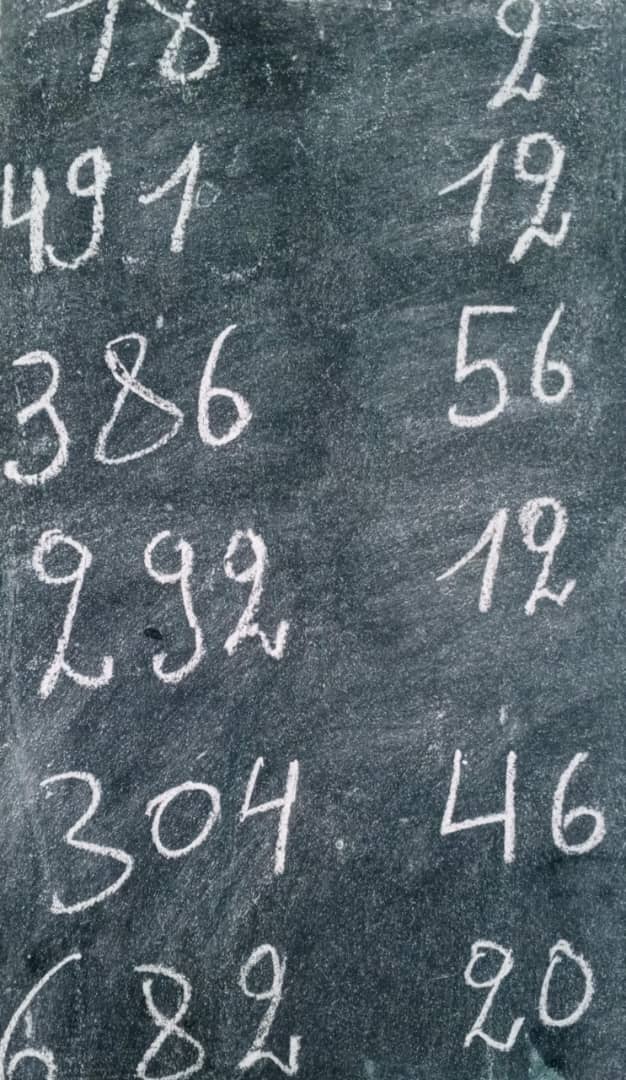 18 2
491 12
386 56
292 12
304 46
682 20